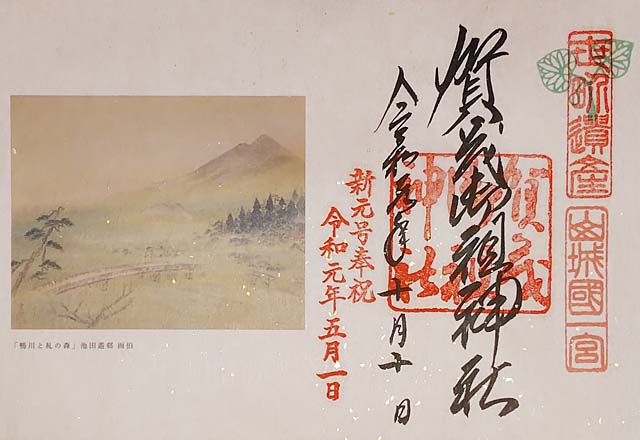 世界遺産
山城國一宮
賀茂御祖神社
賀茂御祖神社
令和元年十月十日
新元号奉祝
令和元年五月一日
「鴨川と糺の森」池田遙邨 画伯